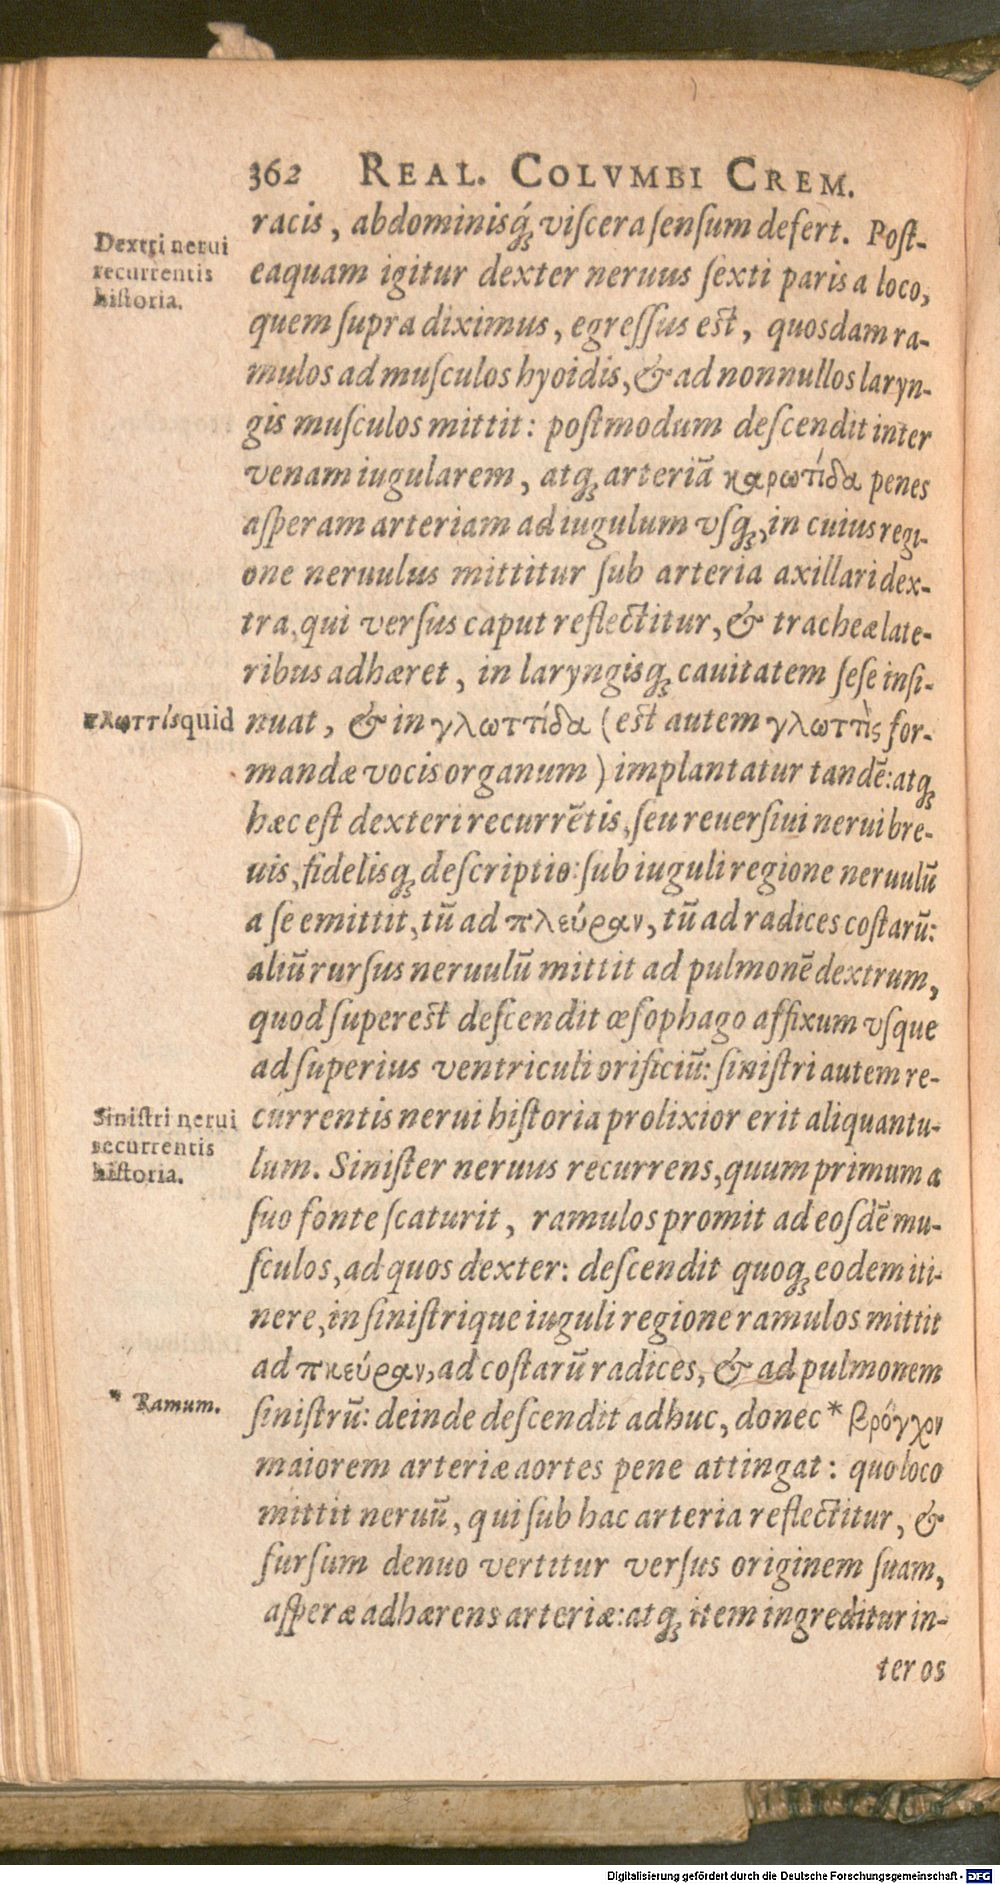 362 REAL. COLVMBI CREM.
racis, abdominisq́ꝫ viſcera ſenſum defert. Poſt-
Dextri nerui
recurrentis
hiſtoria.
eaquam igitur dexter neruus ſexti paris a loco,
quem ſupra diximus, egreſſus eſt, quosdam ra-
mulos ad muſculos hyoidis, & ad nonnullos laryn-
gis muſculos mittit: poſtmodum deſcendit inter
venam iugularem, atqꝫ arteriā καρωτίδα penes
aſperam arteriam ad iugulum vſqꝫ, in cuius regi-
one neruulus mittitur ſub arteria axillari dex-
tra, qui verſus caput reflectitur, & tracheæ late-
ribus adhæret, in laryngisqꝫ cauitatem ſeſe inſi-
γλωττίς quid
nuat, & in γλωττίδα (eſt autem γλωττὶς for-
mandæ vocis organum) implantatur tandē: atqꝫ
hæc eſt dexteri recurrētis, ſeu reuerſiui nerui bre-
uis, fidelisqꝫ deſcriptio: ſub iuguli regione neruulū
a ſe emittit, tū ad πλεύραν, tū ad radices coſtarū:
aliū rurſus neruulū mittit ad pulmonē dextrum,
quod ſupereſt deſcendit œſophago affixum vſque
ad ſuperius ventriculi orificiū: ſiniſtri autem re-
Siniſtri nerui
recurrentis
hiſtoria.
currentis nerui hiſtoria prolixior erit aliquantu-
lum. Siniſter neruus recurrens, quum primum a
ſuo fonte ſcaturit, ramulos promit ad eoſdē mu-
ſculos, ad quos dexter: deſcendit quoqꝫ eodem iti-
nere, in ſiniſtrique iuguli regione ramulos mittit
ad πκεύραν, ad coſtarū radices, & ad pulmonem
* Ramum.
ſiniſtrū: deinde deſcendit adhuc, donec * βρόγχον
maiorem arteriæ aortes pene attingat: quo loco
mittit neruū, qui ſub hac arteria reflectitur, &
ſurſum denuo vertitur verſus originem ſuam,
aſperæ adhærens arteriæ: atqꝫ item ingreditur in-
ter os
Digitalisierung gefördert durch die Deutsche Forschungsgemeinschaft - DFG